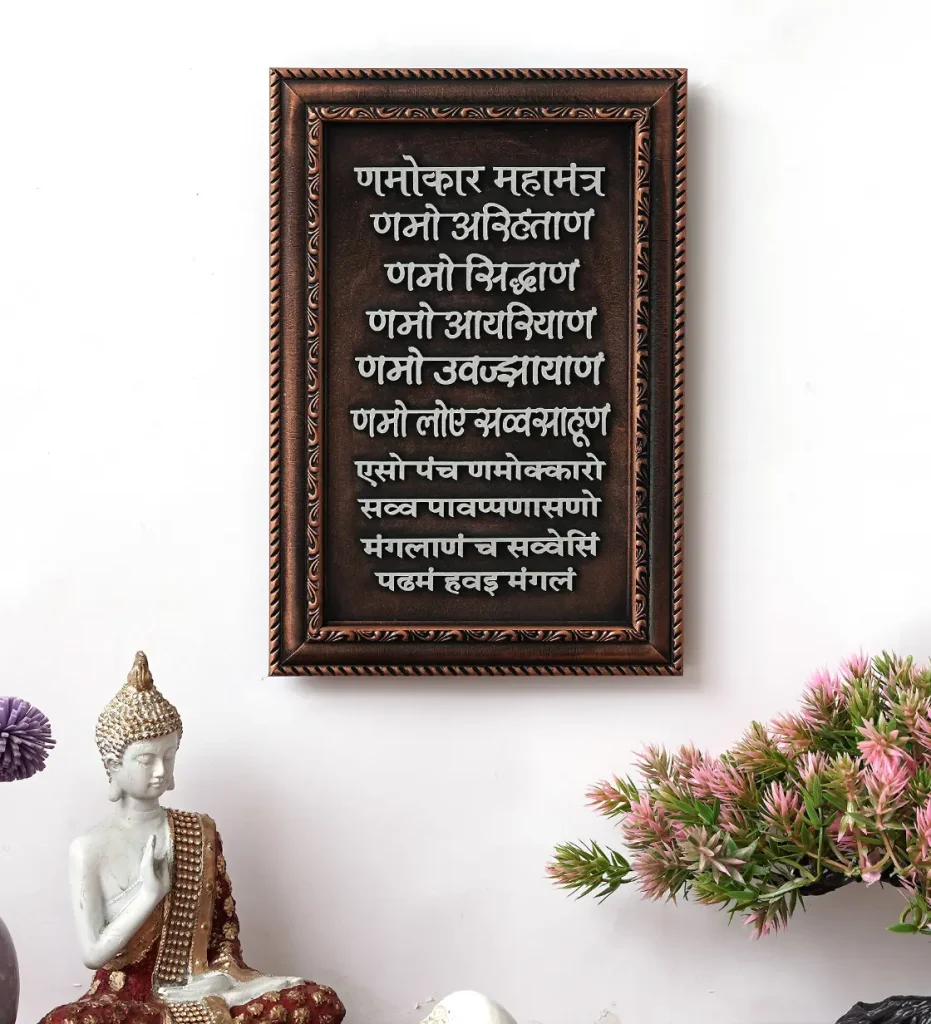 णमोकार महामंत्र
णमो अरिहंताणं
णमो सिद्धाणं
णमो आयरियाणं
णमो उवज्झायाणं
णमो लोए सव्वसाहूणं
एसो पंच णमोक्कारो
सव्व पावप्पणासणो
मंगलाणं च सव्वेसिं
पढमं हवइ मंगलं